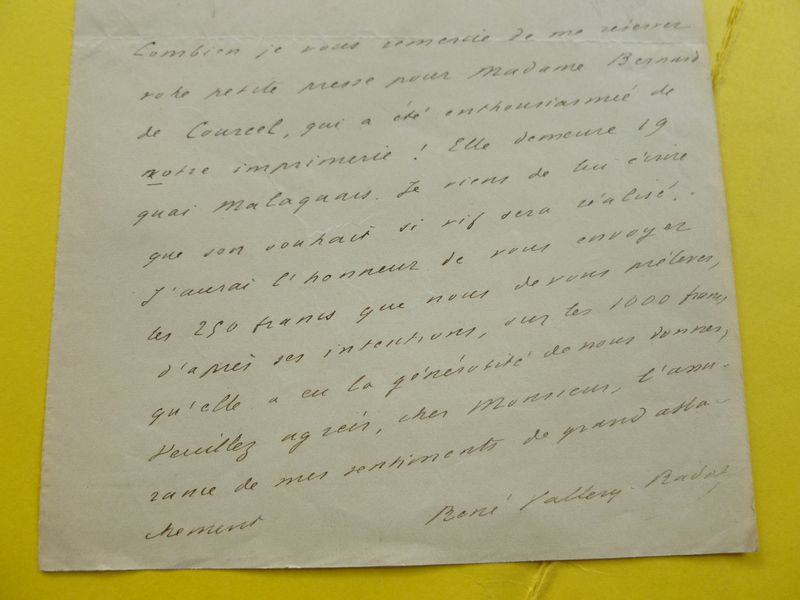 Combien je vous remercie de me réserver
votre petite presse pour Madame Bernard
de Courcel, qui a été enthousiasmié de
notre imprimerie ! Elle demeure 19
quai Malaquais. Je viens de lui écrire
que son souhait si vif sera réalisé.
J'aurai l'honneur de vous envoyer
les 250 francs que nous devons prélever,
d'après ses intentions, sur les 1000 francs
qu'elle a eu la générosité de nous donner,
Veuillez agréer, cher Monsieur, l'assu-
rance de mes sentiments de grand atta-
chement
René Vallery-Radot